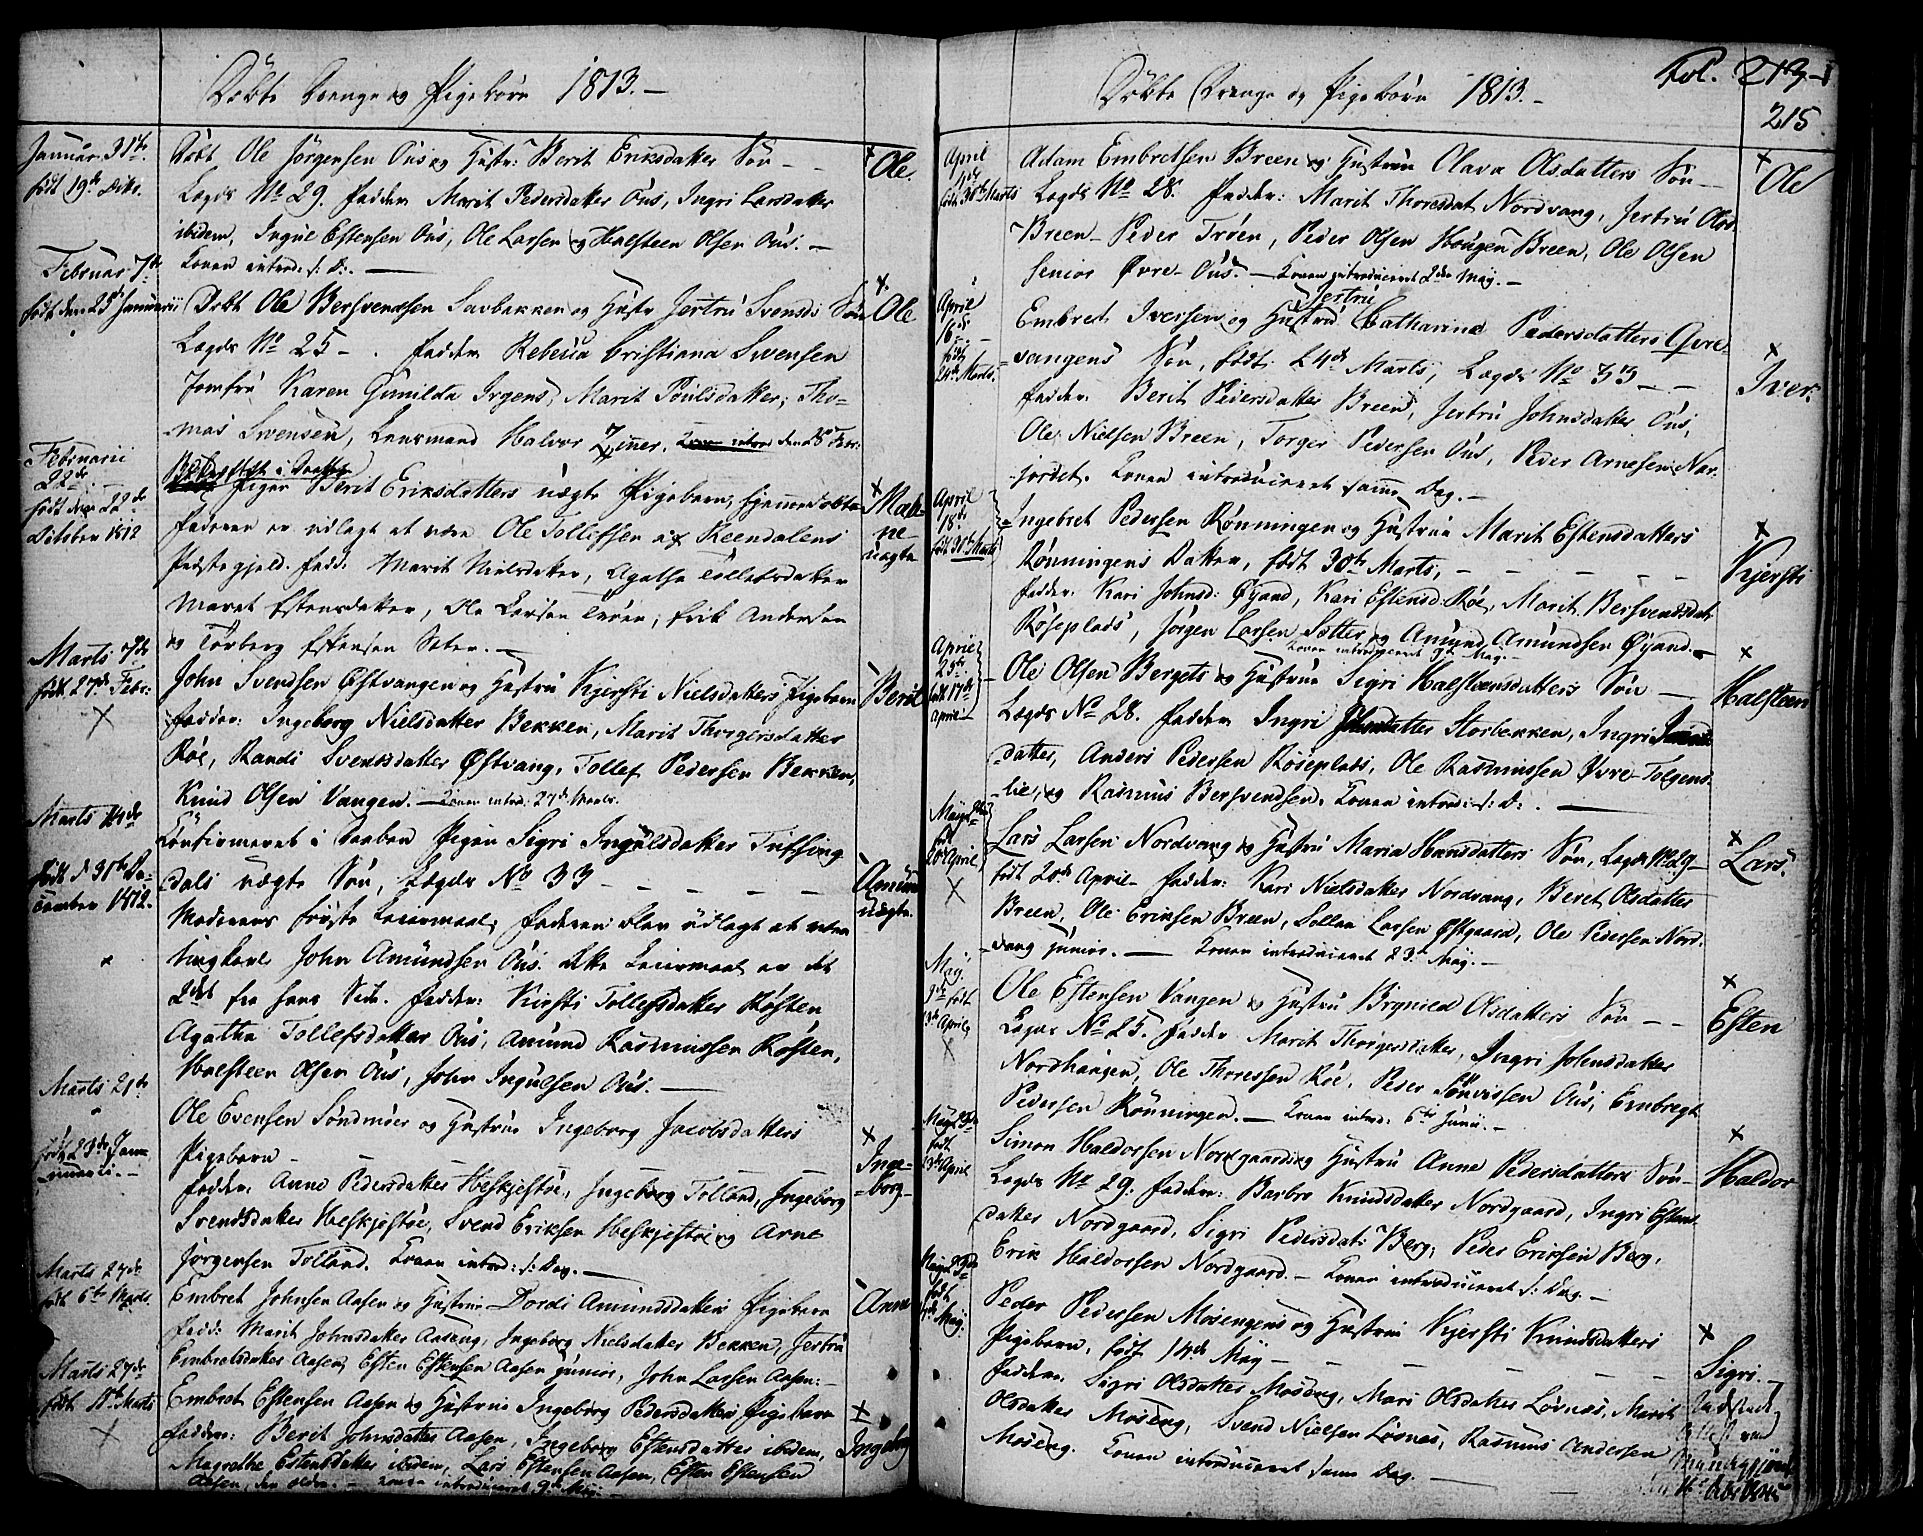 Döbte Drenge og Pigebörn 1813.
Januar 31te
födt 19de Debr.
Döbt Ole Jörgensen Ous og Hustr: Berit Eriksdatters Sön
Lægds No 29. Fadder Marit Pedersdatter Ous, Ingri Larsdatter
ibidem, Ingul Estensen Ous, Ole Larsen og Halsteen Olsen Ous.
Konen introd. s: D:
Ole.
Februar 7de
födt den 25de Januarii
Döbt Ole Bersvendsen Savbekken og Hustr Jertru Svends: Sön
Lægds No 25 Fadder Rebecca Cristiana Swensen
Jomfru Karen Gunilda Irgens, Marit Poulsdatter, Tho-
mas Swensen, Lensmand Halvor Zimer.
Ole
Februarii
22de
födt den 22de
October 1812
Pigen Berit Eriksdatters uægte Pigebarn, hjemmedöbt
Faderen er udlagt at være Ole Tollefsen af Reendalens
Præstegjeld. Fadd: Marit Nielsdatter, Agatha Tollefsdatter
Maret Estensdatter, Ole Larsen, Erik Andersen
og Torberg Estensen
Mah-
ne
uægte
Marts 7de
födt 27de Febr:
John Svendsen Östvangen og Hustru Kjersti Nielsdatters Pigebarn
Fadder: Ingeborg Nielsdatter Bekken, Marit Thorgersdatter
Röe, Randi Svendsdatter Östvang, Tollef Pedersen Bekken,
Knud Olsen Vangen. Konen introd: 27de Marts.
Berit
Marts 14de
födt d 31te De-
cember 1812.
Confirmeret i Daaben Pigen Sigri Ingulsdatter Tufsing-
dals uægte Sön, Lægds No 33
Moderens förste Leiermaal, Faderen blev udlagt at være
Ungkarl John Amundsen Ous. Dette Leiermaal er det
2det fra hans Side. Fadder: Kirsti Tollefsdatter Kosten
Agatha Tollefsdatter Ous, Amund Rasmussen Kosten,
Halsteen Olsen Ous, John Ingulsen Ous.
Amun
uægte.
Marts 21de
födt 23de Jan-
uarii.
Ole Evensen Söndmör og Hustrue Ingeborg Jacobsdatters
Pigebarn
Fadder: Anne Pedersdatter Heskjestöe, Ingeborg Tolland, Ingeborg
Svendsdatter Heskjestöe, Svend Eriksen Heskjestöe og Arne
Jörgensen Tolland. Konen introd: s: Dag.
Inge-
borg
Marts 27de
födt 6te Marts.
Embret Johnsen Aasen og Hustrue Dordi Amundsdatters Pigebarn
Fadd: Marit Johnsdatter Aaseng, Ingeborg Nielsdatter Bekken, Jertru
Embretsdatter Aasen, Esten Estensen Aasen junior, John Larsen Aasen.
Anne
Marts 27de
födt Marts
Embret Estensen Aasen og Hustrue Ingeborg Pedersdatters Pigebarn
Fadder: Berit Johnsdatter Aasen, Ingeborg Estensdatter ibidem,
Magrethe Estensdatter ibidem, Lars Estensen Aasen, Esten Estensen
Aasen, den eldre. Konen introduceret 9de Maij.
Ingeborg
Döbte Drenge og Pigebörn 1813.
Fol. 213
215
April
födt 30te Marts
Adam Embretsen Breen og Hustrue Olava Olsdatters Sön
Lægds No 28. Fadder: Marit Thoresdat Nordvang, Jertru Olsd
Breen Peder Tröen, Peder Olsen Haugen Breen, Ole Olsen
Senior Övre-Ous. Konen introduceret 2den Maij.
Ole
April
16de
födt
24de Marts.
Jertru
Embret Iversen og Hustru Catharina Pedersdatters Qvre-
vangens Sön, födt 24de Marts, Lægds No 33
Fadder: Berit Pedersdatter Breen, Jertru Johnsdatter Ous,
Ole Nielsen Breen, Torger Pedersen Ous, Peder Arnesen Nor-
jordet. Konen introduceret samme Dag.
Iver.
April
18de
födt 30te Marts
Ingebret Pedersen Rönningen og Hustrue Marit Estensdatters
Rönningens Datter, födt 30te Marts,
Fadder: Kari Johnsd: Öyand, Kari Estensd: Röe, Marit Bersvendsdat
Röseplads, Jörgen Larsen Sætter og Amund Amundsen Öyand.
Konen introduceret 9de Maij.
Kjersti
April
25de
födt 17de
April
Ole Olsen Bergets og Hustrue Sigri Halsteensdatters Sön
Lægds No 28. Fadder Ingri Johnsdatter Storbekken, Ingri
datter, Anders Pedersen Röseplads, Ole Rasmussen Övre-Tolgens-
lie, og Rasmus Bersvendsen. Konen introd: s: D:
Halsteen
Maij 2den
födt
20de April
Lars Larsen Nordvang og Hustru Maria Hansdatters Sön, Lægds No 29
födt 20de April Fadder: Kari Nielsdatter Nordvang, Beret Olsdatter
Breen, Ole Eriksen Breen, Sollan Larsen Östgaard, Ole Pedersen Nord-
vang junior. Konen introduceret 23de Maij.
Lars.
Maij
9de födt
13de April
Ole Estensen Vangen og Hustru Brynild Olsdatters Sön
Lægds No 25. Fadder Marit Thorgersdatter, Ingri Johnsdatter
Nordhaugen, Ole Thoressen Röe, Peder Sönvissen Ous, Embregt
Pedersen Rönningen. Konen introd: 6te Junii.
Esten
Maij
födt
13de April
Simon Haldorsen Nordgaard og Hustru Anne Pedersdatters Sön
Lægds No 29: Fadder: Barbro Knudsdatter Nordgaard, Ingri Estens-
datter Nordgaard, Sigri Pedersdat: Berg, Peder Eriksen Berg,
Erik Haldorsen Nordgaard. Konen introduceret s: Dag.
Haldor
Maij 23de
födt
14de Maij
Peder Pedersen Mosengens og Hustru Kjersti Knudsdatters
Pigebarn, födt 14de Maij
Fadder: Sigri Olsdatter Moseng, Mari Olsdatter Lövnes, Marit
Olsdatter Moseng, Svend Nielsen Lösnes, Rasmus Andersen
Moseng. Konen introduceret samme Dag.
Sigri.